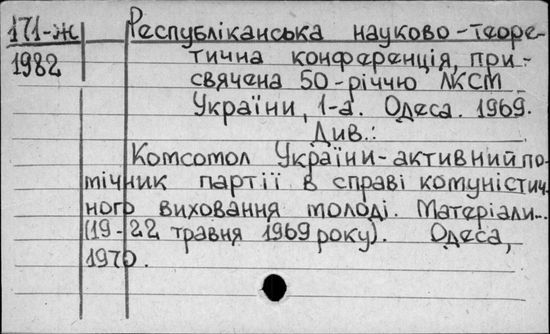 171-Ж Республіканська науково-теоре-
1982 тична конференція, при-
свячена 50-річчю ЛКСМ
України, 1-а. Одеса. 1969.
Див.:
Комсомол України-активний по-
мічник партії в справі комуністич-
ного виховання молоді. Матеріали...
(19-22 травня 1969 року). Одеса,
1970.